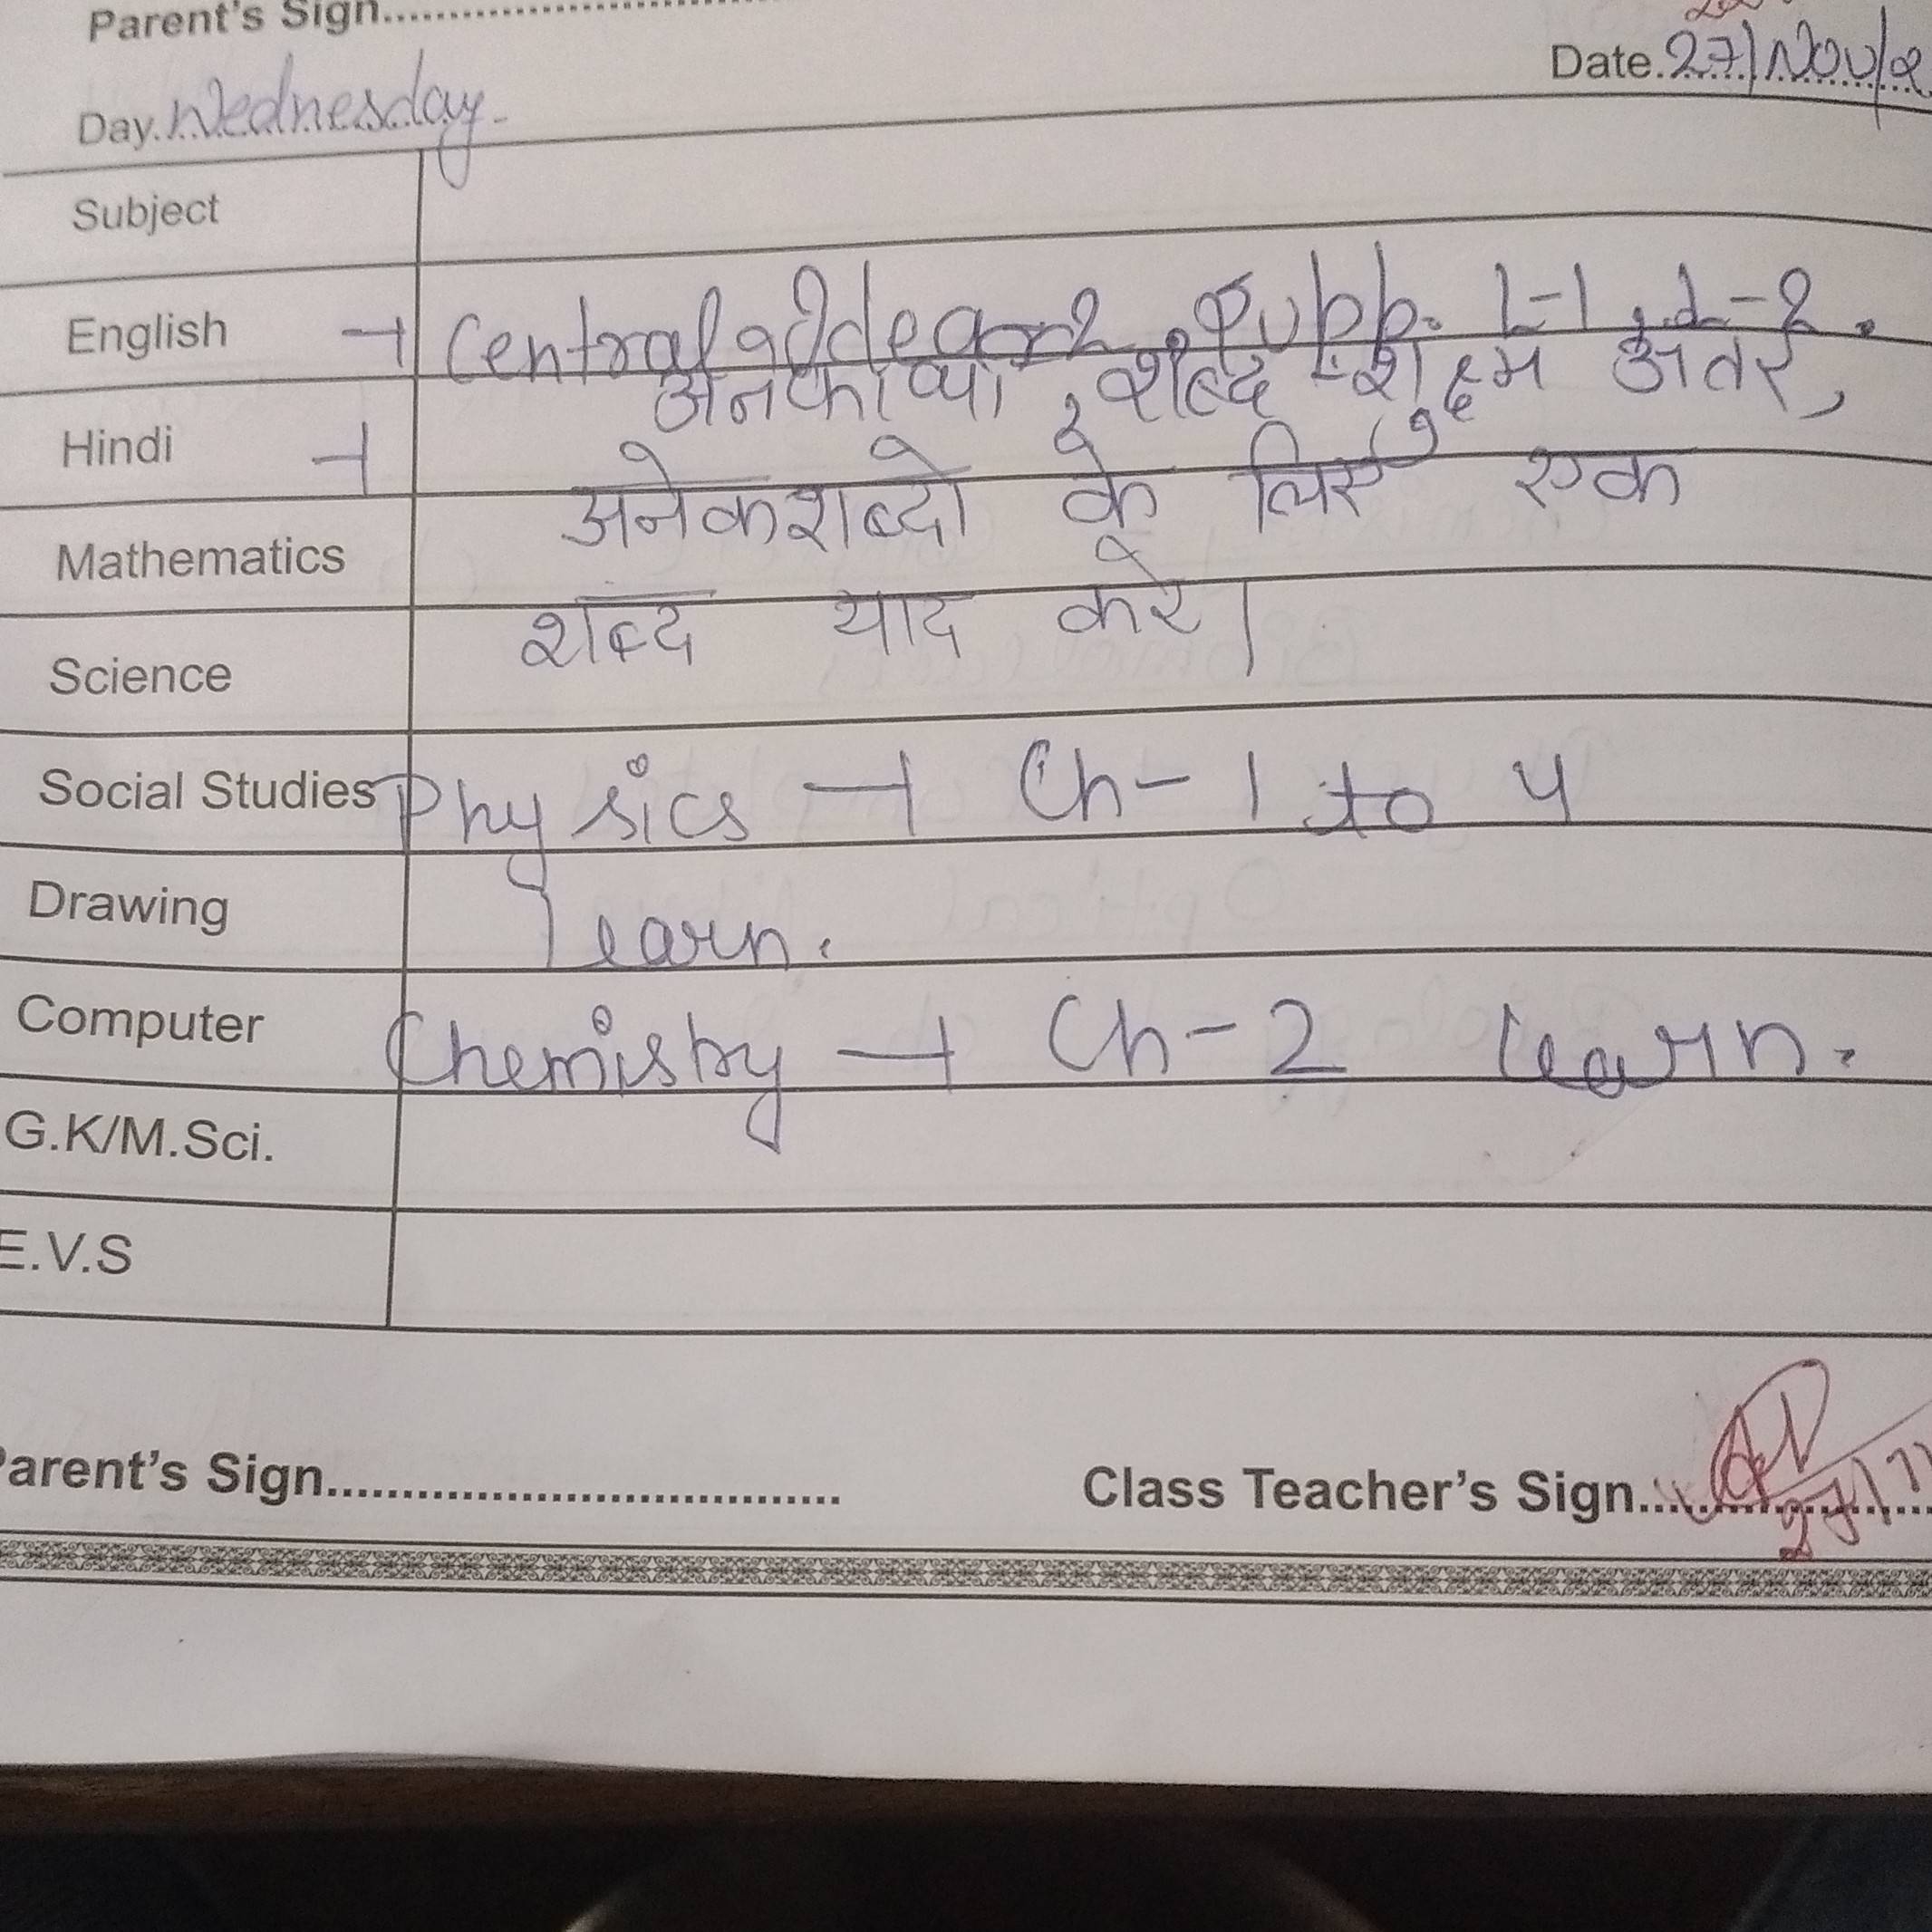 Parent's Sign
Date. 27/Nov/2
Day. Wednesday.
Subject
English → Central Idea Supp. L-1, L-2.
Hindi → अनेकार्थी, शब्द शुक्ष्म अंतर,
अनेकशब्दो के लिए एक
Mathematics
शब्द याद करे।
Science
Social Studies Physics → Ch-1 to 4
Drawing learn.
Computer Chemistry → Ch-2 learn.
G.K/M.Sci.
E.V.S
Parent's Sign
Class Teacher's Sign
27/11